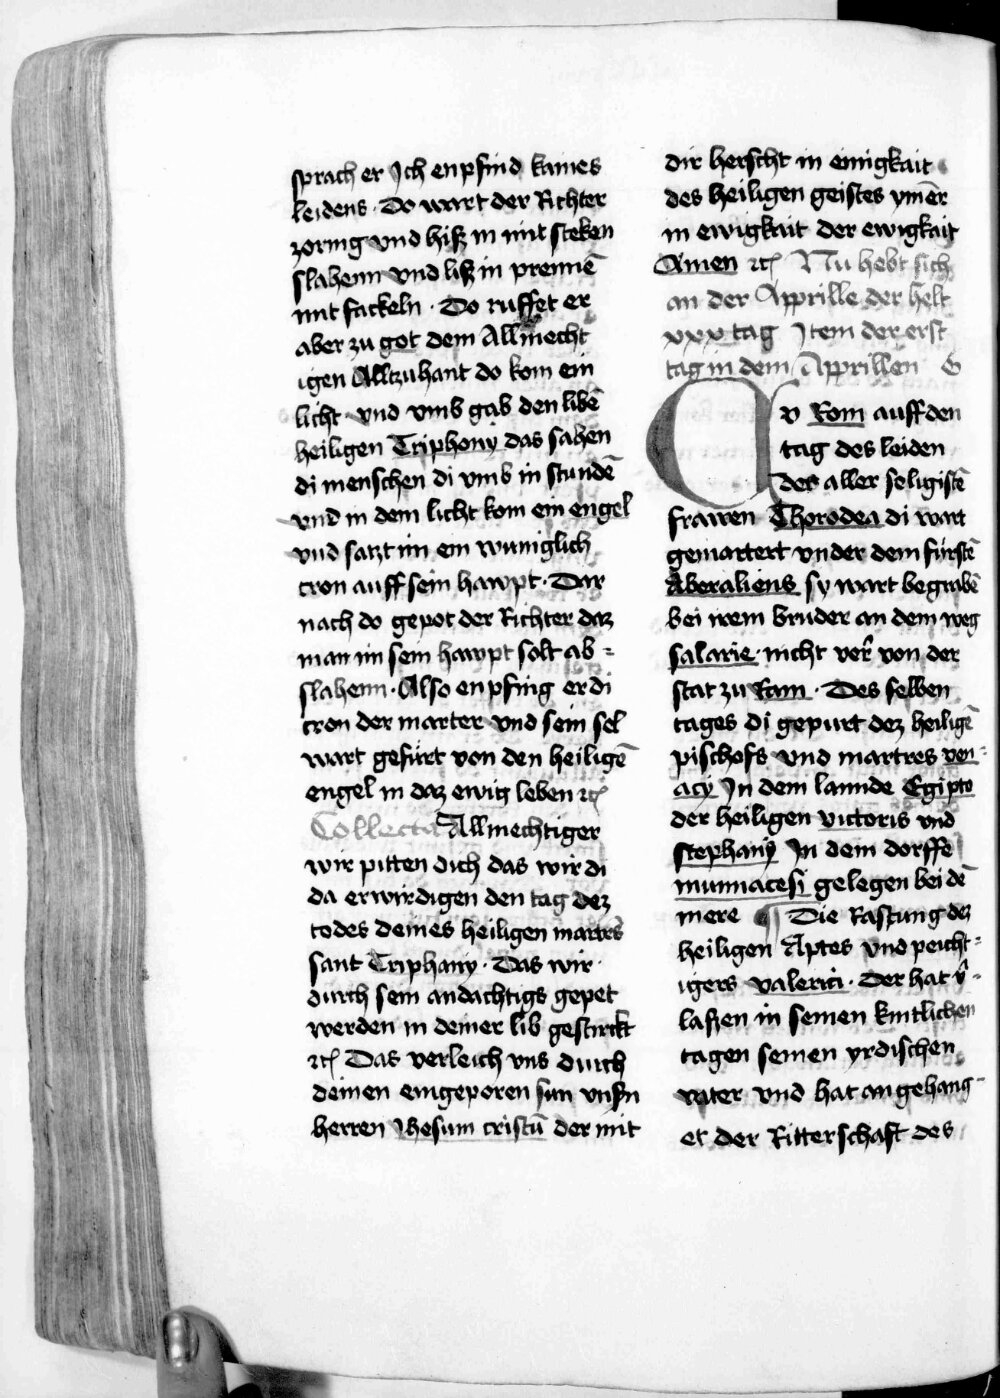 sprach er Ich enpfind kaines
leidens · Do wart der Richter
zornig vnd hiß in mit steken
slahenn vnd liß in prennē
mit fackeln · Do ruffet er
aber zu got dem Allmecht
igen Alltzuhant do kom ein
licht · vnd vmb gab den libē
heiligen Triphony das sahen
di menschen di vmb in stundē
vnd in dem licht kom ein engel
vnd satzt im ein wuniglich
cron auff sein hawpt · Dar
nach do gepot der Richter daz
man im sein hawpt solt ab =
slahenn · Also enpfing er di
cron der marter vnd sein sel
wart gefürt von den heiligē
engel in daz ewig leben ꝛc
Collecta Allmechtiger
wir pitten dich das wir di
da erwirdigen den tag dez
todes deines heiligen martrēs
sant Triphany · Das wir
durch sein andachtigs gepet
werden in deiner lib gesterckt
ꝛc Das verleich vns durch
deinen eingeporen sun vnsn̄
herren Jhesum cristū der mit
dir herscht in einigkait
des heiligen geistes ym̄er
in ewigkait der ewigkait
Amen ꝛc Nu hebt sich
an der Apprille der helt
xxx tag Item der erst
tag in dem Apprillen G
Zv Rom auff den
tag des leiden
der aller seligistē
frawen Thorodea di wart
gemartert vnder dem fürstē
Aberaliens sy wart begrabē
bei irem bruder an dem weg
salarie · nicht ver̄ von der
stat zu Ram · Des selben
tages di gepurt dez heiligē
pischofs vnd martres ven=
acÿ In dem lannde Egipto
der heiligen victoris vnd
stephanÿ In dem dorffe
munnacesi gelegen bei dē
mere ¶ Die Rastung dez
heiligen Aptes vnd peicht=
igers valerici · Der hat v̄=
laßen in seinen kintlichen
tagen seinen yrdischen
vater vnd hat an gehang=
et der Ritterschaft des